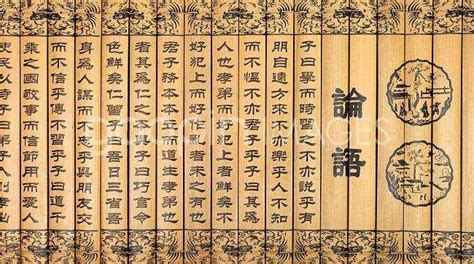 論語
子曰學而時習之不亦說乎有
朋自遠方來不亦樂乎人不知
而不慍不亦君子乎有子曰其爲
人也孝弟而好犯上者鮮矣不
好犯上而好作亂者未之有也
君子務本本立而道生孝弟也
者其爲仁之本與子曰巧言令
色鮮矣仁曾子曰吾日三省吾
身爲人謀而不忠乎與朋友交
而不信乎傳不習乎子曰道千
乘之國敬事而信節用而愛人
使民以時子曰弟子入
IMAGES